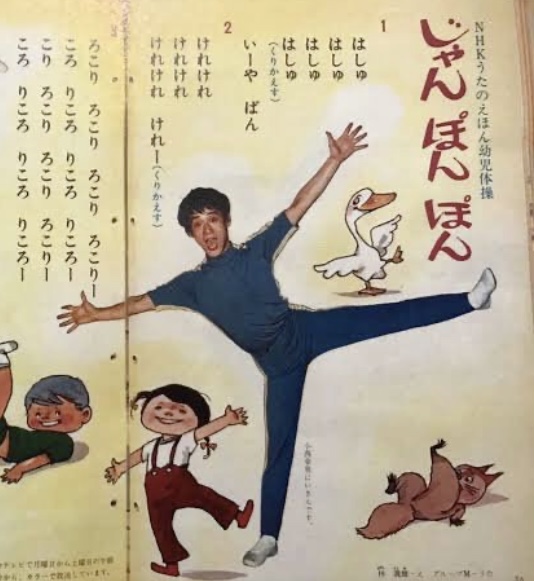 NHKうたのえほん幼児体操
じゃん ぽん ぽん
1
はしゅ
はしゅ
はしゅ
はしゅ
(くりかえす)
いーや ぱん
2
けれけれ
けれけれ
けれけれ けれー(くりかえす)
3
ろこり ろこり ろこり ろこりー
ころ りころ りころ りころー
こり ろこり ろこり ろこりー
ころ りころ りころ りころー